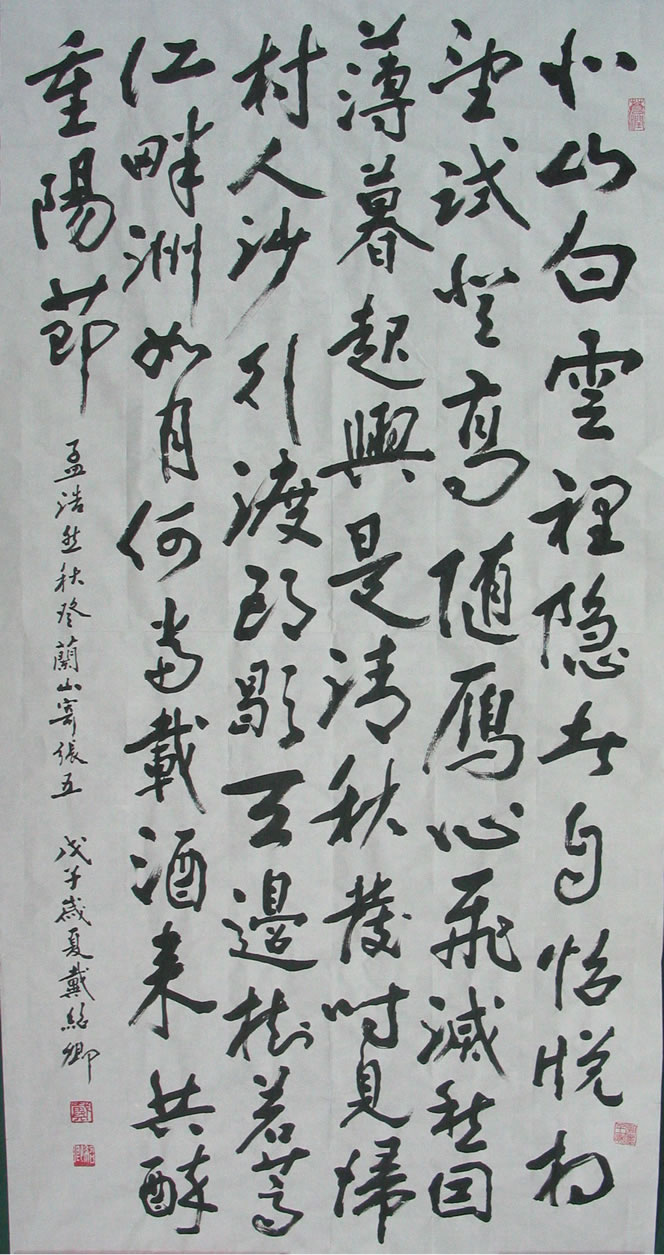 北山白雲裡隐者自怡悅相
望試登高随鴈心飛滅愁因
薄暮起興是清秋發时見歸
村人沙行渡頭歇天邊樹若薺
江畔洲如月何當載酒来共醉
重陽節
孟浩然秋登蘭山寄張五 戊子歲夏戴紹卿